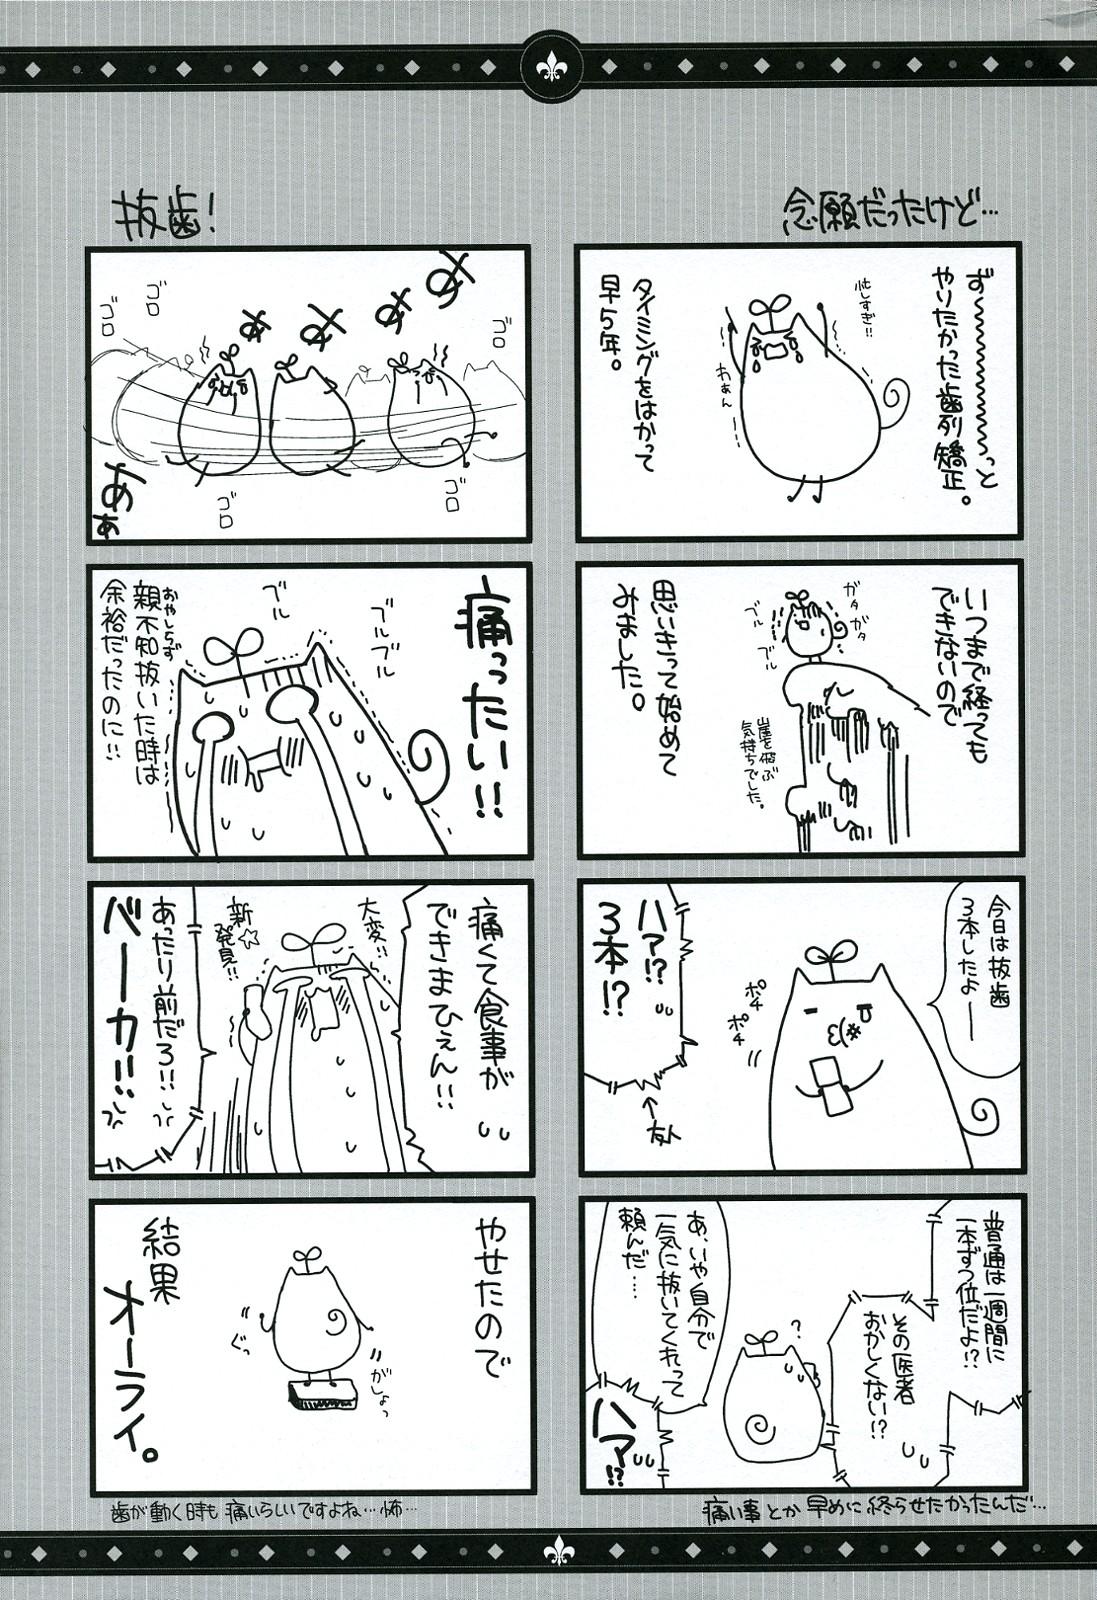 念願だったけど…
ず〜〜〜っと
やりたかった歯列矯正。
忙しすぎ!!
わぁん
タイミングをはかって
早5年。
いつまで経っても
できないので
ガタガタ
ブル
ブル
崖を飛ぶ
気持ちでした。
思いきって始めて
みました。
今日は抜歯
3本したよー
ポチ
ポチ
ハァ!?
3本!?
←友人
普通は一週間に
一本ずつ位だよ!?
その医者
おかしくない!?
?
あ、いや自分で
一気に抜いてくれって
頼んだ……
ハァ!?
痛い事とか早めに終らせたかったんだ…
抜歯!
ああああ
ゴロ
ゴロ
ゴロ
ゴロ
ゴロ
ああ
痛ったい!!
ブルブル
ブル
親不知抜いた時は
おやしらず
余裕だったのに!!
痛くて食事が
できまひぇん!!
大変!!
新☆
発見!!
あったり前だろ!!
バーカ!!
やせたので
がしょっ
ぐっ
結果
オーライ。
歯が動く時も痛いらしいですよね…怖…